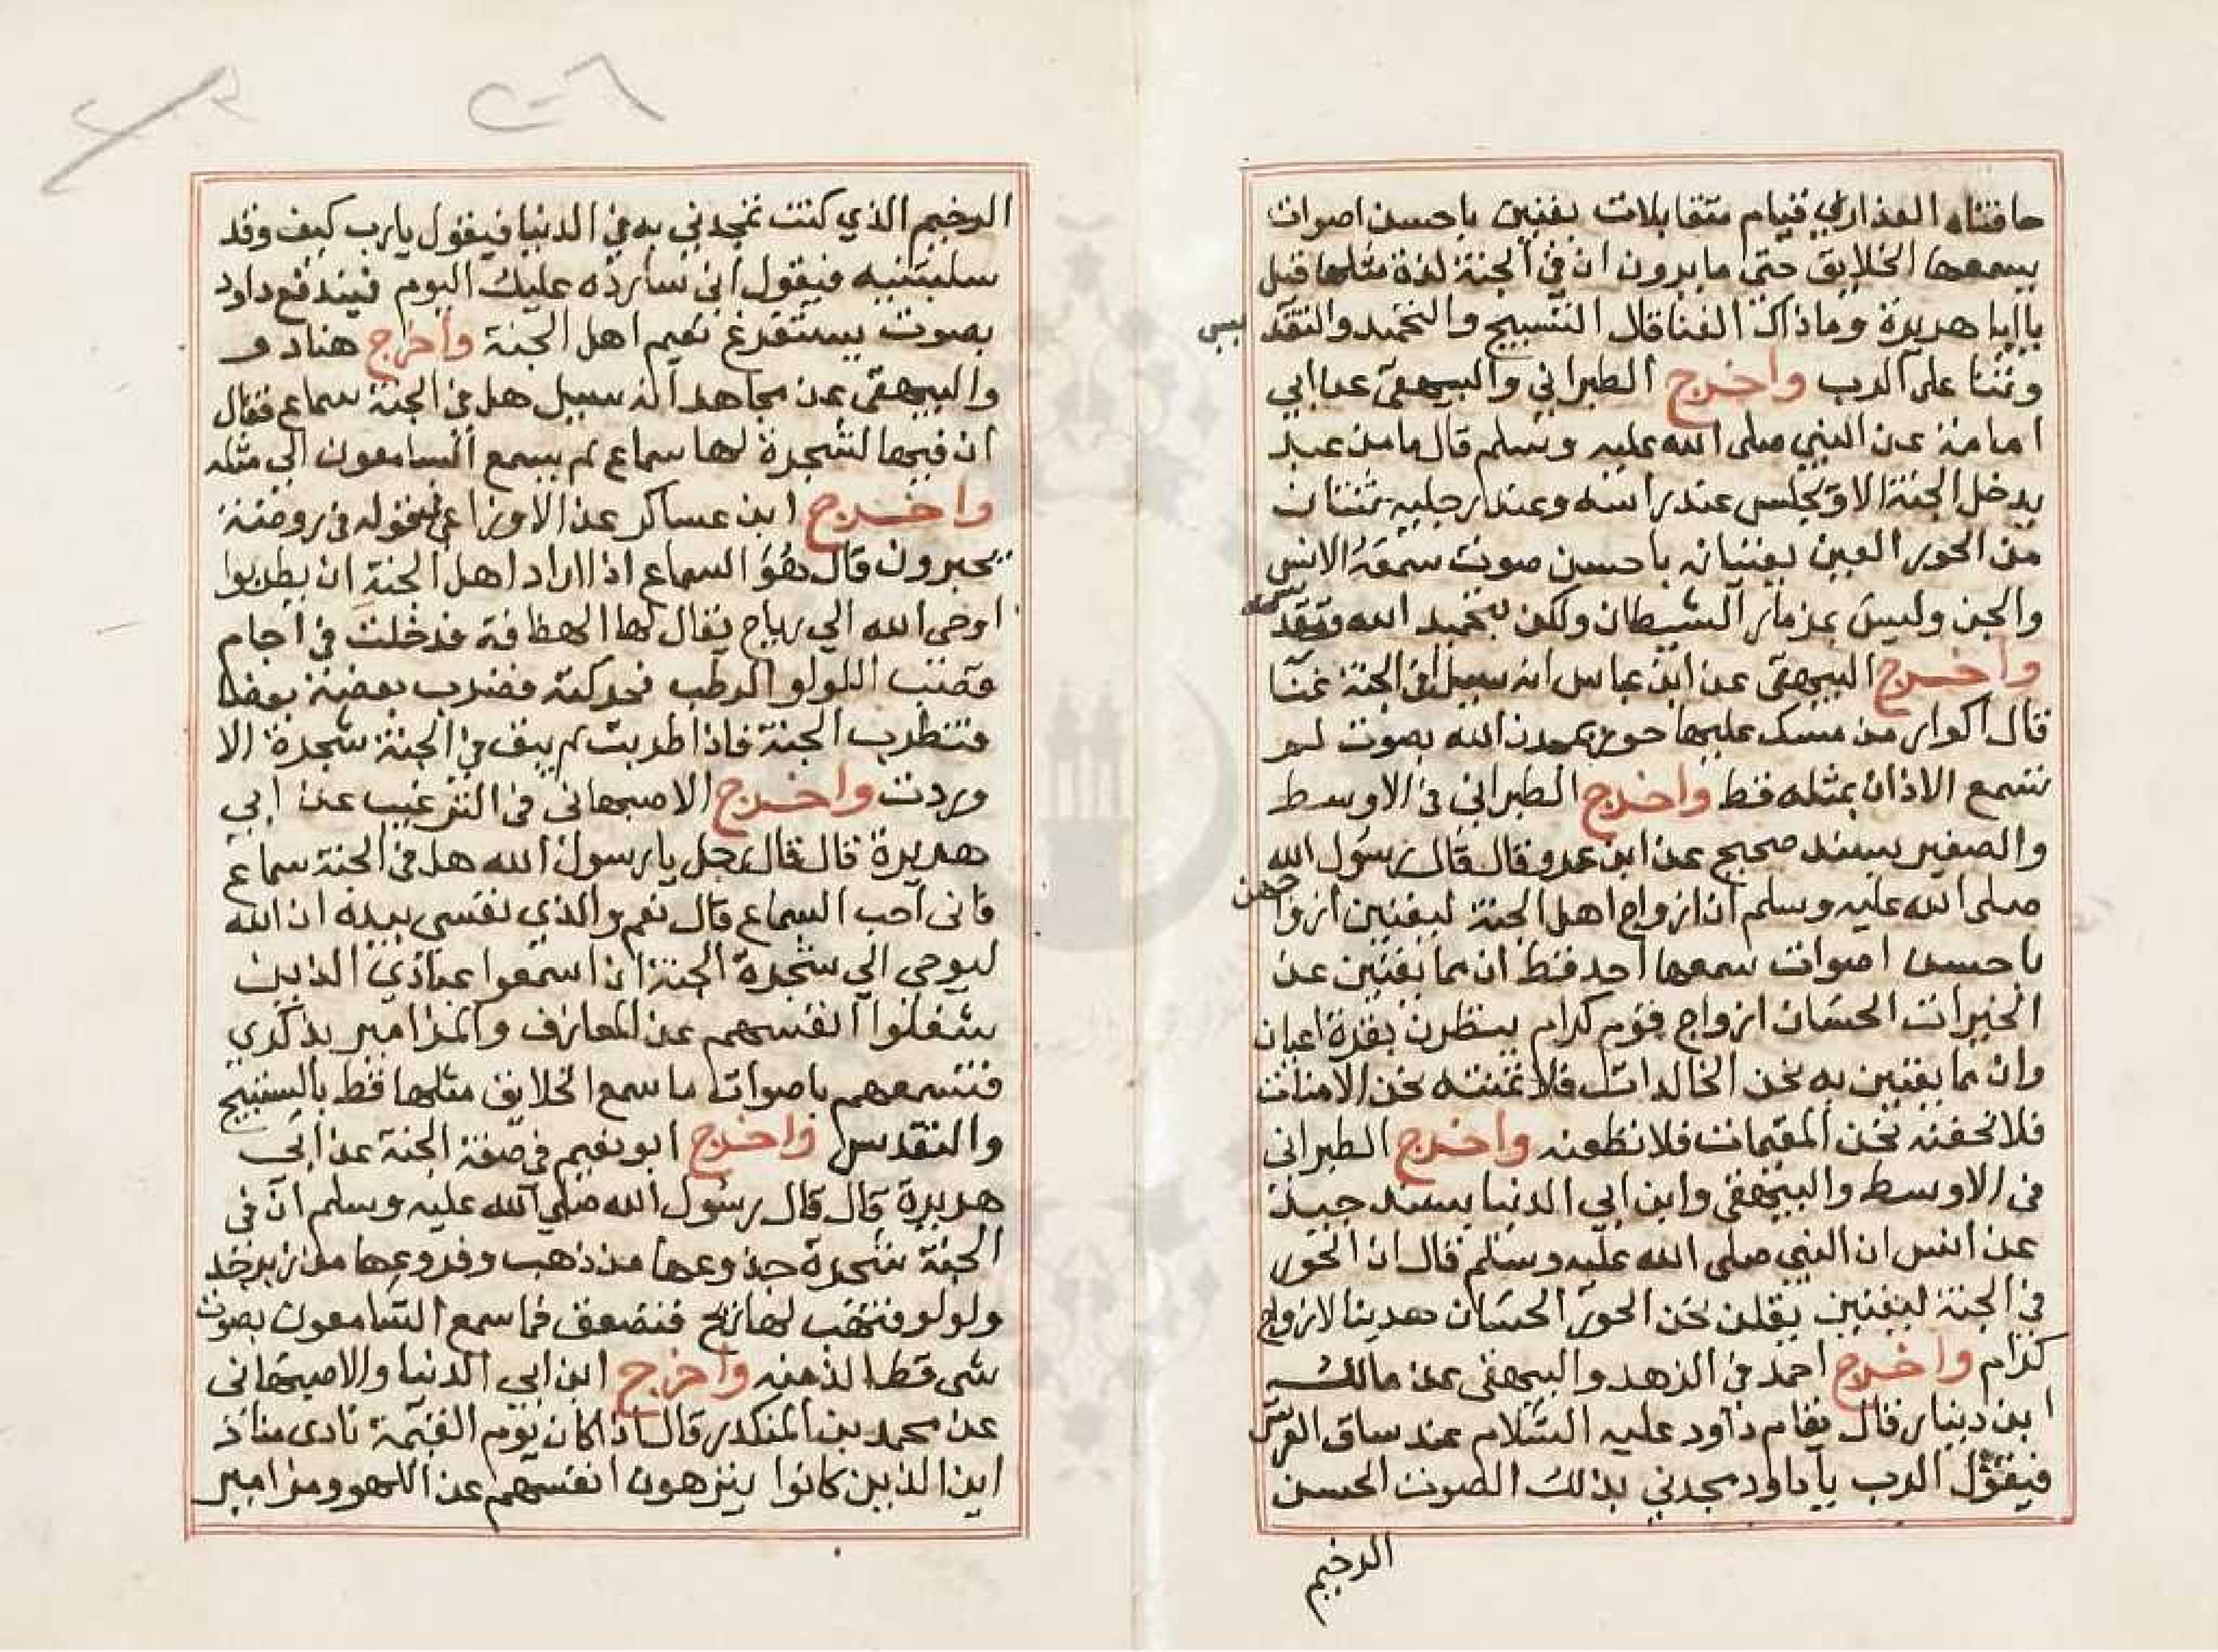 حافتاه العذاري قيام متقابلات يغنين باحسن اصوات
يسمعها الخلايق حتى ما يرون ان في الجنة لذة مثلها قيل
يا ابا هريرة وما ذاك الغنا قال التسبيح والتحميد والتقد
يس
وثنا على الرب واخرج الطبراني والبيهقي عن ابي
امامة عن النبي صلى الله عليه وسلم قال ما من عبد
يدخل الجنة الا ويجلس عند راسه وعند رجليه ثنتان
من الحور العين يغنيانه باحسن صوت سمعه الانس
والجن وليس بمزمار الشيطان ولكن بتحميد الله وتقد
يسه
واخرج البيهقي عن ابن عباس انه سيل افي الجنة غنا
قال اكوار من مسك عليها حور يمجدن الله بصوت لم
تسمع الاذان بمثله قط واخرج الطبراني في الاوسط
والصغير بسند صحيح عن ابن عمر وقال قال رسول الله
صلى الله عليه وسلم ان ازواج اهل الجنة ليغنين ازوا
جهن
باحسن اصوات سمعها احد قط ان مما يغنين عن
الخيرات الحسان ازواج قوم كرام ينظرن بقرة اعيان
وان مما يغنين به نحن الخالدات فلا نمتنه نحن الامنات
فلا نخفنه نحن المقيمات فلا نظعنه واخرج الطبراني
في الاوسط والبيهقي وابن ابي الدنيا بسند جيد
عن انس ان النبي صلى الله عليه وسلم قال ان الحور
في الجنة ليغنين يقلن نحن الحور الحسان هدينا لازواج
كرام واخرج احمد في الزهد والبيهقي عن مالك
ابن دينار قال يقام داود عليه السلام عند ساق العرش
فيقول الرب يا داود مجدني بذلك الصوت الحسن
الرخيم
الرخيم الذي كنت تمجدني به في الدنيا فيقول يا رب كيف وقد
سلبتنيه فيقول اني سارده عليك اليوم فيندفع داود
بصوت يستفرغ نعيم اهل الجنة واخرج هناد
والبيهقي عن مجاهد انه سيل هل في الجنة سماع فقال
ان فيها لشجرة لها سماع لم يسمع السامعون الي مثله
واخرج ابن عساكر عن الاوزاعي في قوله في روضة
يحبرون قال هو السماع اذا اراد اهل الجنة ان يطربوا
اوحى الله الي رياح يقال لها الهفافة فدخلت في اجام
قصب اللولو الرطب فحركته فضرب بعضه بعضا
فتطرب الجنة فاذا طربت لم يبق في الجنة شجرة الا
وردت واخرج الاصبهاني في الترغيب عن ابي
هريرة قال قال رجل يا رسول الله هل في الجنة سماع
فاني احب السماع قال نعم والذي نفسي بيده ان الله
ليوحي الي شجرة الجنة ان اسمعوا عبادي الذين
شغلوا انفسهم عن المعازف والمزامير بذكري
فتسمعهم باصوات ما سمع الخلايق مثلها قط بالتسبيح
والتقديس واخرج ابو نعيم في صفة الجنة عن ابي
هريرة قال قال رسول الله صلي الله عليه وسلم ان في
الجنة شجرة جذوعها من ذهب وفروعها من زبرجد
ولولو فتهب لها ريح فتصفق فما سمع السامعون بصوت
شي قط الذ منه واخرج ابن ابي الدنيا والاصبهاني
عن محمد بن المنكدر قال اذا كان يوم القيمة نادى مناد
اين الذين كانوا ينزهون انفسهم عن اللهو ومزامير